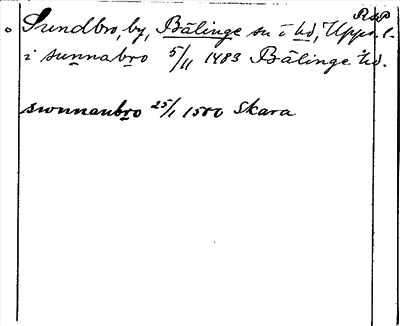 RAP
Sundbro, by, Bälinge sn o hd, Upps. l.
i sunnabro 5/11 1483 Bälinge hd.
swnnanbro 25/1 1500 Skara